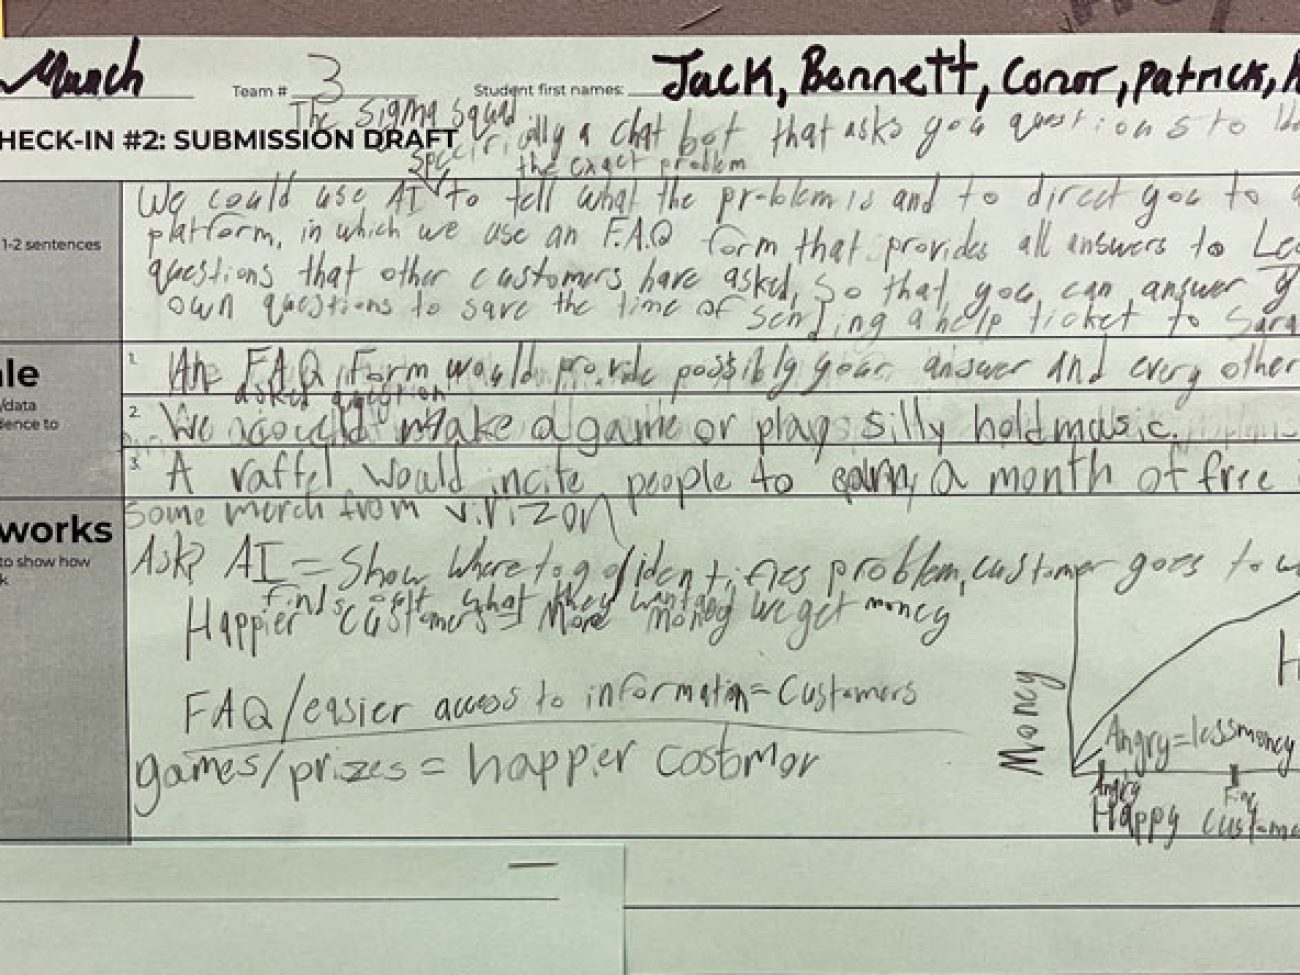 Munch Team # 3 Student first names: Jack, Bennett, Conor, Patrick,
The Sigma Squad
CHECK-IN #2: SUBMISSION DRAFT
specifically a chat bot that asks you questions to
the exact problem
We could use AI to tell what the problem is and to direct you to a
1-2 sentences
platform, in which we use an F.A.Q form that provides all answers to
questions that other customers have asked, so that you can answer
own questions to save the time of sending a help ticket to Sara
1. An FAQ form would provide possibly your answer and every other
asked question
/data
2. We could make a game or play silly hold music.
3. A raffel would incite people to earn a month of free
some merch from virizon
works
to show how
Ask? AI = Show where to go/identifies problem, customer goes to
finds out what they want
Happier customers = More money we get money
FAQ/easier access to information = Customers
games/prizes = happier costomor
Money
Angry = less money
Angry
Fine
Happy custome